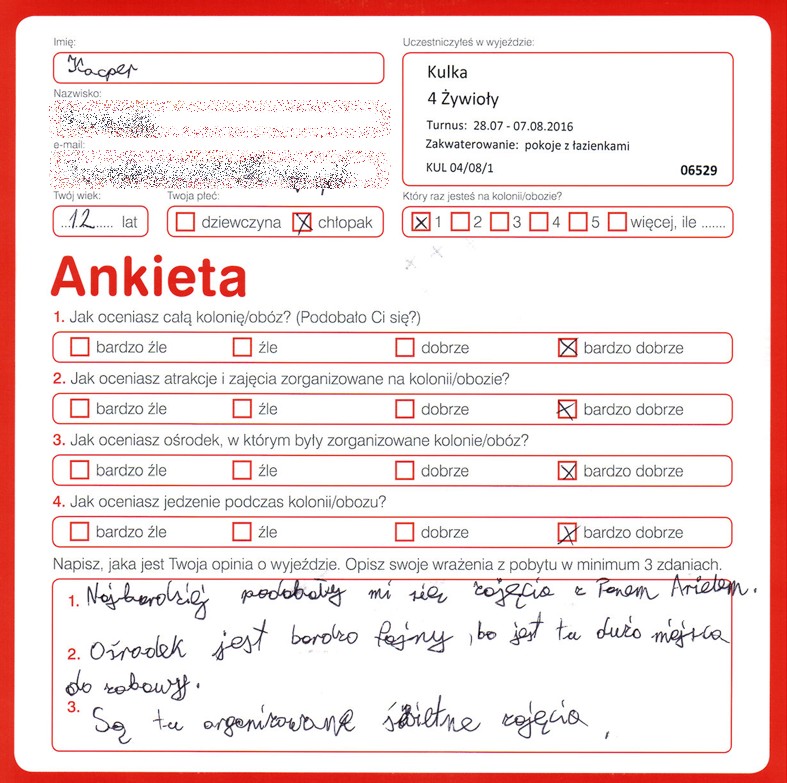 Imię:
Kacper
Nazwisko:
e-mail:
Twój wiek:
12 lat
Twoja płeć:
dziewczyna chłopak
Uczestniczyłeś w wyjeździe:
Kulka
4 Żywioły
Turnus: 28.07 - 07.08.2016
Zakwaterowanie: pokoje z łazienkami
KUL 04/08/1 06529
Który raz jesteś na kolonii/obozie?
1 2 3 4 5 więcej, ile .......
Ankieta
1. Jak oceniasz całą kolonię/obóz? (Podobało Ci się?)
bardzo źle źle dobrze bardzo dobrze
2. Jak oceniasz atrakcje i zajęcia zorganizowane na kolonii/obozie?
bardzo źle źle dobrze bardzo dobrze
3. Jak oceniasz ośrodek, w którym były zorganizowane kolonie/obóz?
bardzo źle źle dobrze bardzo dobrze
4. Jak oceniasz jedzenie podczas kolonii/obozu?
bardzo źle źle dobrze bardzo dobrze
Napisz, jaka jest Twoja opinia o wyjeździe. Opisz swoje wrażenia z pobytu w minimum 3 zdaniach.
1. Najbardziej podobały mi się zajęcia z Panem Arielem.
2. Ośrodek jest bardzo fajny, bo jest tu dużo miejsca
do zabawy.
3. Są tu organizowane świetne zajęcia.